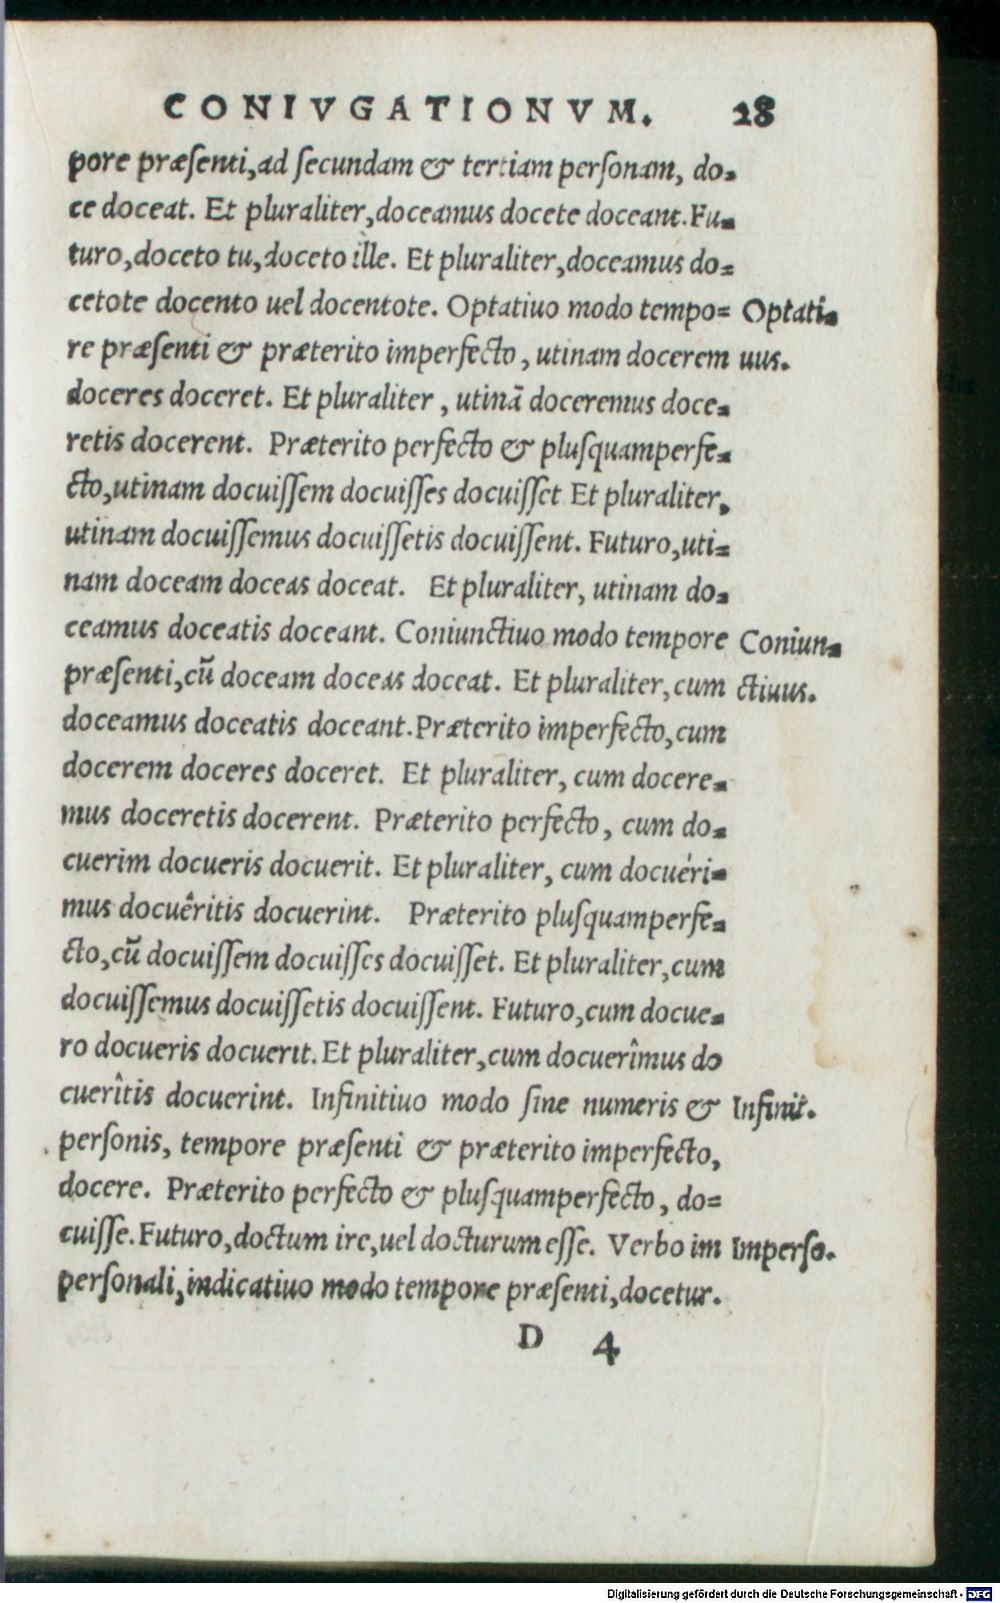 CONIVGATIONVM. 28
pore præsenti, ad secundam & tertiam personam, do-
ce doceat. Et pluraliter, doceamus docete doceant. Fu-
turo, doceto tu, doceto ille. Et pluraliter, doceamus do-
cetote docento uel docentote. Optatiuo modo tempo- Optati-
re præsenti & præterito imperfecto, utinam docerem uus.
doceres doceret. Et pluraliter, utinã doceremus doce-
retis docerent. Præterito perfecto & plusquamperfe-
cto, utinam docuissem docuisses docuisset Et pluraliter,
utinam docuissemus docuissetis docuissent. Futuro, uti-
nam doceam doceas doceat. Et pluraliter, utinam do-
ceamus doceatis doceant. Coniunctiuo modo tempore Coniun-
præsenti, cũ doceam doceas doceat. Et pluraliter, cum ctiuus.
doceamus doceatis doceant. Præterito imperfecto, cum
docerem doceres doceret. Et pluraliter, cum docere-
mus doceretis docerent. Præterito perfecto, cum do-
cuerim docueris docuerit. Et pluraliter, cum docuéri-
mus docuêritis docuerint. Præterito plusquamperfe-
cto, cũ docuissem docuisses docuisset. Et pluraliter, cum
docuissemus docuissetis docuissent. Futuro, cum docue-
ro docueris docuerit. Et pluraliter, cum docuerîmus do
cuerîtis docuerint. Infinitiuo modo sine numeris & Infinit.
personis, tempore præsenti & præterito imperfecto,
docere. Præterito perfecto & plusquamperfecto, do-
cuisse. Futuro, doctum ire, uel docturum esse. Verbo im Imperso.
personali, indicatiuo modo tempore præsenti, docetur.
D 4
Digitalisierung gefördert durch die Deutsche Forschungsgemeinschaft - DFG